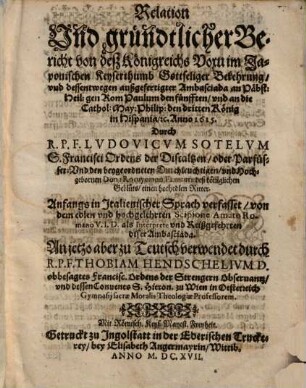 Relation
Und gründtlicher Be-
richt von deß Königreichs Voxu im Ja-
ponischen Keyserthumb Gottseliger Bekehrung/
vnd dessentwegen außgefertigter Ambasciada an Päbst:
Heilgen Rom Paulum den fünfften/ vnd an die
Cathol: May: Philip: den dritten König
in Hispania/ɾc. Anno 1615.
Durch
R. P. F. LVDOVICVM SOTELVM
S. Francisci Ordens der Discaltzen/ oder Parfüs-
ser/ Und den beygeordneten Durchleuchtigen/ vnd Hoch-
gebornen Don
Gesipts/ einen hochedlen Ritter.
Anfangs in Italienischer Sprach verfasset/ von
dem edlen vnd hochgelehrten Scipione Amati Ro-
mano V. I. D. als Interprete vnd Reißgefehrten
diser Ambasciada.
An jetzo aber zu Teutsch verwendet durch
R. P. F. THOBIAM HENDSCHELIVM D.
obbesagtes Francisc. Ordens der Strengern Observantz/
vnd dessen Conventes S. Hieron. zu Wien in Oesterreich
Gymnasij sacræ Moralis Theologiæ Professorem.
Mit Römisch. Keys. Mayest. Freyheit.
Getruckt zu Ingolstatt in der Ederischen Trucke-
rey/ bey Elisabeth Angermayrin/ Wittib.
ANNO M. DC. XVII.